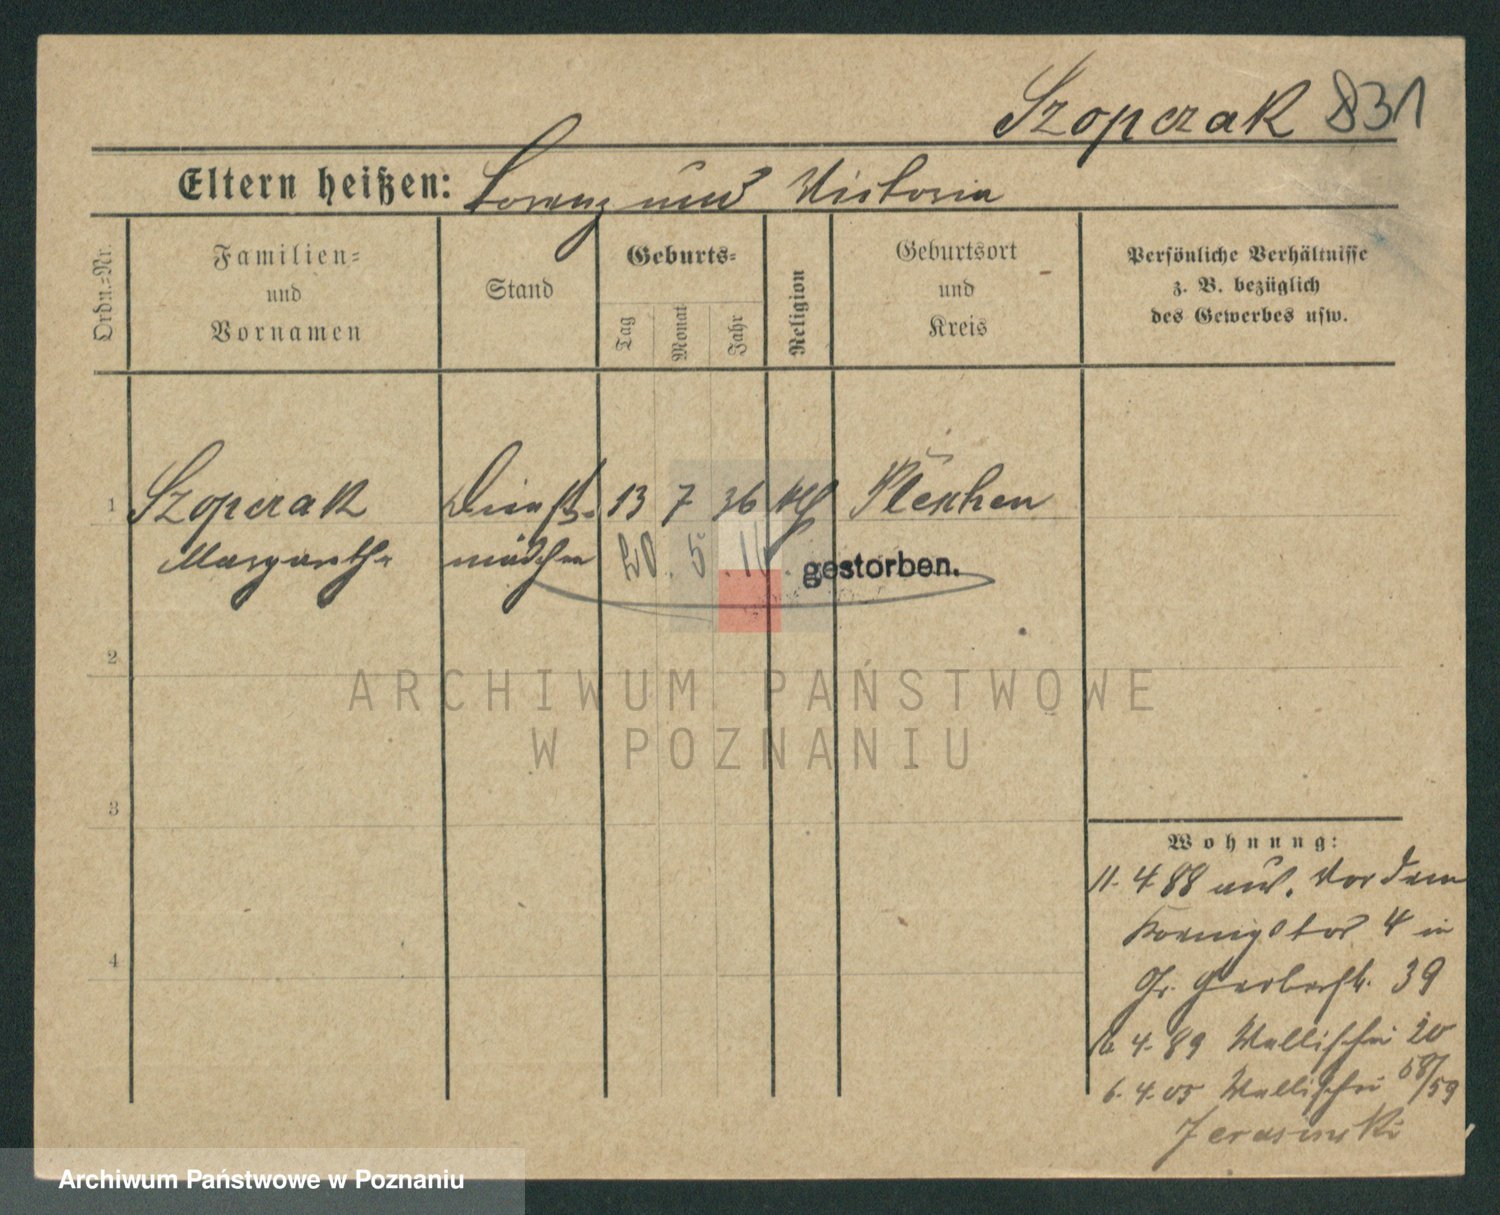 Szopczak 831
Eltern heißen: Lorenz und Victoria
Ordn.=Nr.
Familien=
und
Vornamen
Stand
Geburts=
Tag
Monat
Jahr
Religion
Geburtsort
und
Kreis
Persönliche Verhältnisse
z. B. bezüglich
des Gewerbes usw.
1 Szopczak Dienst- 13 7 36 kth Pleschen
Margarethe mädchen 20. 5. 16. gestorben.
2
ARCHIWUM PAŃSTWOWE
W POZNANIU
3
Wohnung:
11. 4 88 Vor dem
Koenigstor 4 in
Gr. Gerberstr. 39
4. 89 Wallischei 20
4
6. 4. 05 Wallischei 58/59
Jerasinski
Archiwum Państwowe w Poznaniu